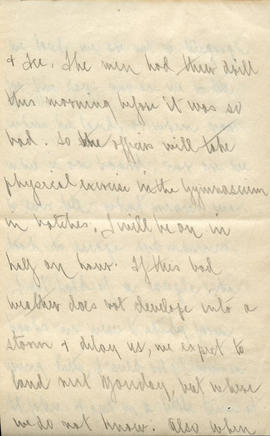 & Ice. The men had their drill
this morning before it was so
bad. So the officers will take
physical exercise in the gymnasium
in batches, I will be on in
half an hour. If this bad
weather does not develope into a
storm & delay us, we expect to
land next Monday, but where
we do not know. Also when